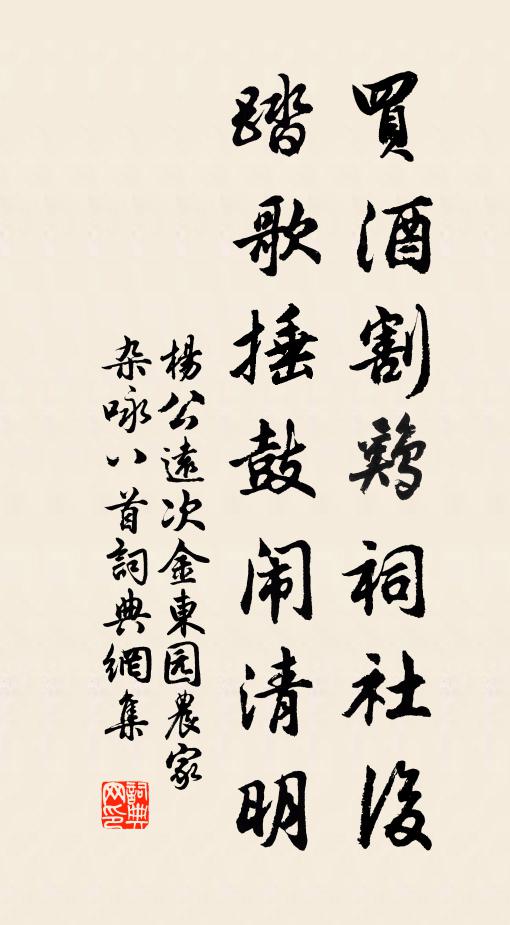 買酒割鷄祠社後
踏歌捶鼓闹清明
楊公遠次金東园農家
杂咏八首詞典網集
詞典网印